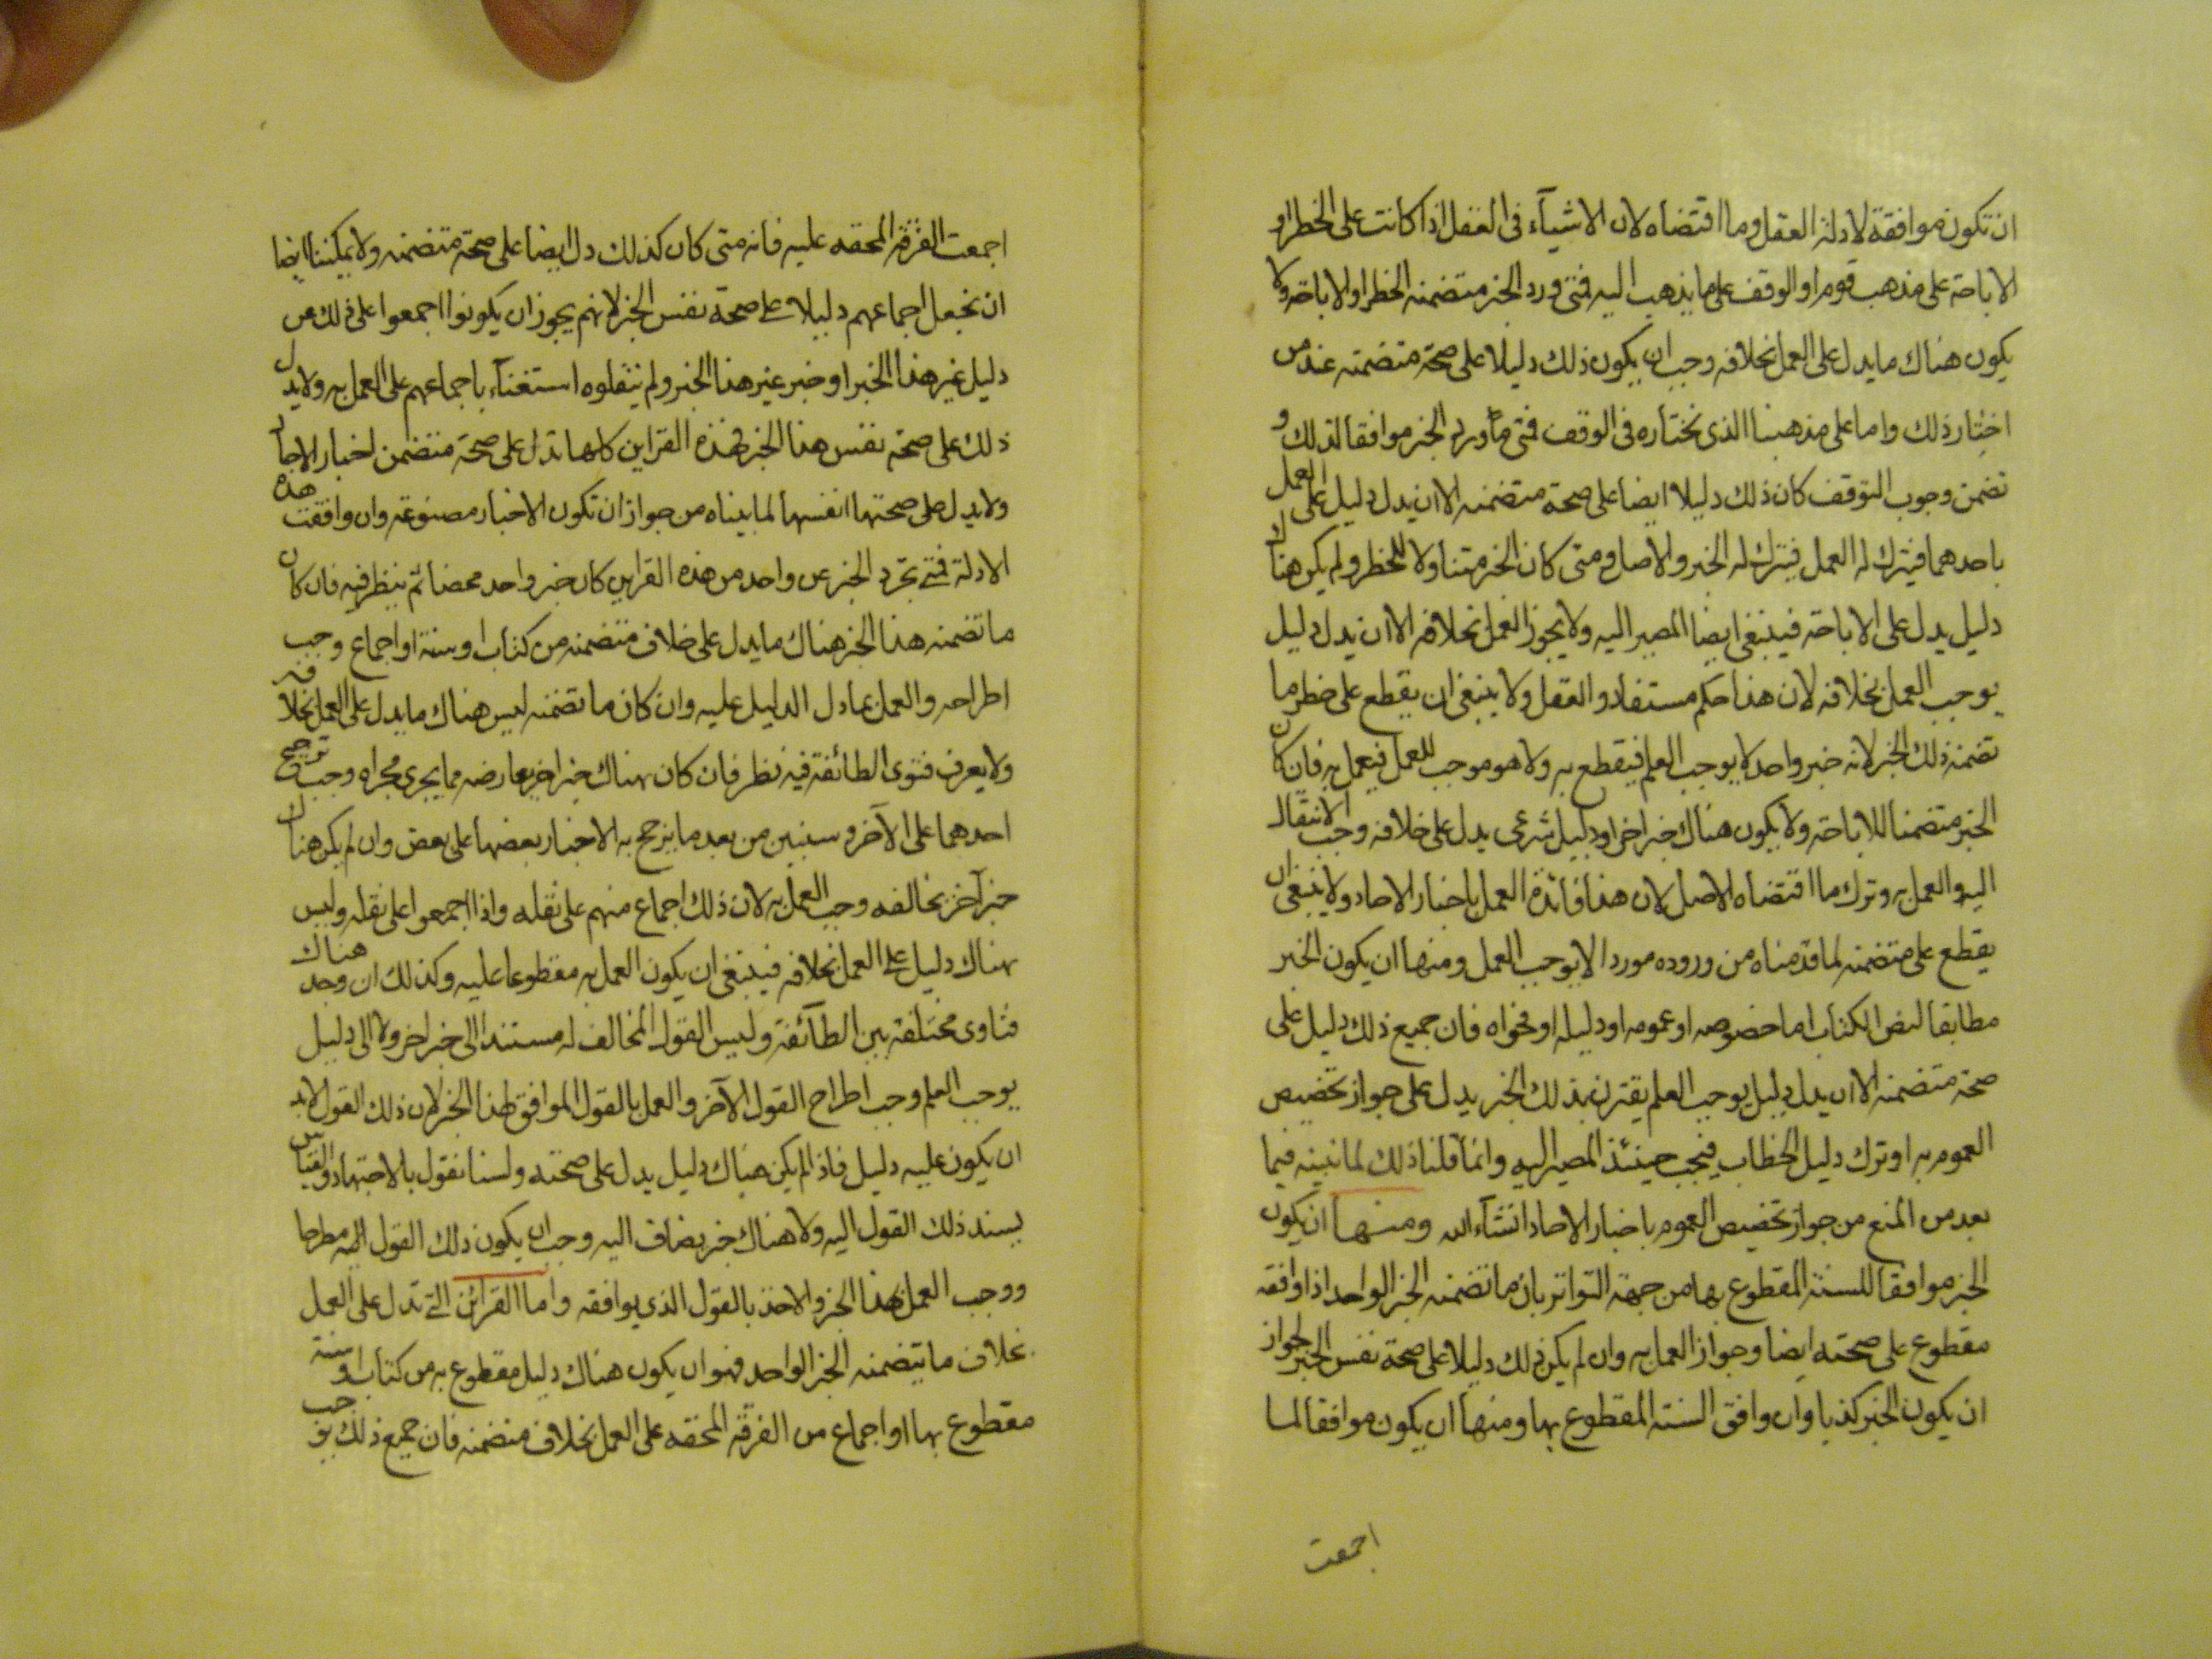 ان تكون موافقة لادلة العقل وما اقتضاه لان الاشيآء فى العقل اذا كانت على الحظر او
الاباحة على مذهب قوم او الوقف على ما يذهب اليه فمتى ورد الخبر متضمنه الحظر او الاباحة ولا
يكون هناك ما يدل على العمل بخلافه وجب ان يكون ذلك دليلا على صحة متضمنه عند من
اختار ذلك واما على مذهبنا الذى نختاره فى الوقف فمتى ما ورد الخبر موافقا لذلك و
تضمن وجوب التوقف كان ذلك دليلا ايضا على صحة متضمنه الا ان يدل دليل على العمل
باحدهما فيترك له العمل فيترك له الخبر والاصل ومتى كان الخبر متناولا للحظر ولم يكن هناك
دليل يدل على الاباحة فينبغى ايضا المصير اليه ولا يجوز العمل بخلافه الا ان يدل دليل
يوجب العمل بخلافه لان هذا حكم مستفاد والعقل ولا ينبغى ان يقطع على حظر ما
تضمنه ذلك الخبر لانه خبر واحد لا يوجب العلم فيقطع به ولا هو موجب للعمل فيعمل به فان كان
الخبر متضمنا للاباحة ولا يكون هناك خبر اخر او دليل شرعى يدل على خلافه وجب الانتقال
اليه والعمل به وترك ما اقتضاه الاصل لان هذا فائدة العمل باخبار الاحاد ولا ينبغى ان
يقطع على متضمنه لما قدمناه من وروده مورد الا يوجب العمل ومنها ان يكون الخبر
مطابقا لنص الكتاب اما خصوصه او عمومه او دليله او فحواه فان جميع ذلك دليل على
صحة متضمنه الا ان يدل دليل يوجب العلم يقترن بذلك الخبر يدل على جواز تخصيص
العموم به او ترك دليل الخطاب فيجب حينئذ المصير اليه وانما قلنا ذلك لما نبينه فيما
بعد من المنع من جواز تخصيص العموم باخبار الاحاد انشآء الله ومنها ان يكون
الخبر موافقا للسنة المقطوع بها من جهة التواتر بان ما تضمنه الخبر الواحد اذا وافقه
مقطوع على صحته ايضا وجواز العمل به وان لم يكن ذلك دليلا على صحة نفس الخبر لجواز
ان يكون الخبر كذبا وان وافق السنة المقطوع بها ومنها ان يكون موافقا لما
اجمعت
اجمعت الفرقة المحقه عليه فانه متى كان كذلك دل ايضا على صحة متضمنه ولا يمكننا ايضا
ان نجعل اجماعهم دليلا على صحة نفس الخبر لانهم يجوز ان يكونوا اجمعوا على ذلك من
دليل غير هذا الخبر او خبر غير هذا الخبر ولم ينقلوه استغنآء باجماعهم على العمل به ولا يدل
ذلك على صحة نفس هذا الخبر فهذه القراين كلها تدل على صحة متضمن اخبار الاحاد
ولا يدل على صحتها انفسها لما بيناه من جواز ان تكون الاخبار مصنوعة وان وافقت هذه
الادلة فمتى تجرد الخبر عن واحد من هذه القراين كان خبر واحد محضا ثم ينظر فيه فان كان
ما تضمنه هذا الخبر هناك ما يدل على خلاف متضمنه من كتاب او سنة او اجماع وجب
اطراحه والعمل بما دل الدليل عليه وان كان ما تضمنه ليس هناك ما يدل على العمل بخلافه
ولا يعرف فتوى الطائفة فيه نظر فان كان هناك خبر اخر يعارضه مما يجرى مجراه وجب ترجيح
احدهما على الآخر وسنبين من بعد ما يرجح به الاخبار بعضها على بعض وان لم يكن هناك
خبر آخر يخالفه وجب العمل به لان ذلك اجماع منهم على نقله واذا اجمعوا على نقله وليس
هناك دليل على العمل بخلافه فينبغى ان يكون العمل به مقطوعا عليه وكذلك ان وجد هناك
فتاوى مختلفة بين الطآئفة وليس القول المخالف له مستندا الى خبر اخر ولا الى دليل
يوجب العلم وجب اطراح القول الآخر والعمل بالقول الموافق لهذا الخبر لان ذلك القول لابد
ان يكون عليه دليل فاذا لم يكن هناك دليل يدل على صحته ولسنا نقول بالاجتهاد والقياس
يسند ذلك القول اليه ولا هناك خبر يضاف اليه وجب ان يكون ذلك القول اليه مطرحا
ووجب العمل بهذا الخبر والاخذ بالقول الذى يوافقه واما القرائن التى تدل على العمل
بخلاف ما يتضمنه الخبر الواحد فهو ان يكون هناك دليل مقطوع به من كتاب او سنة
مقطوع بها او اجماع من الفرقة المحقه على العمل بخلاف متضمنه فان جميع ذلك يوجب